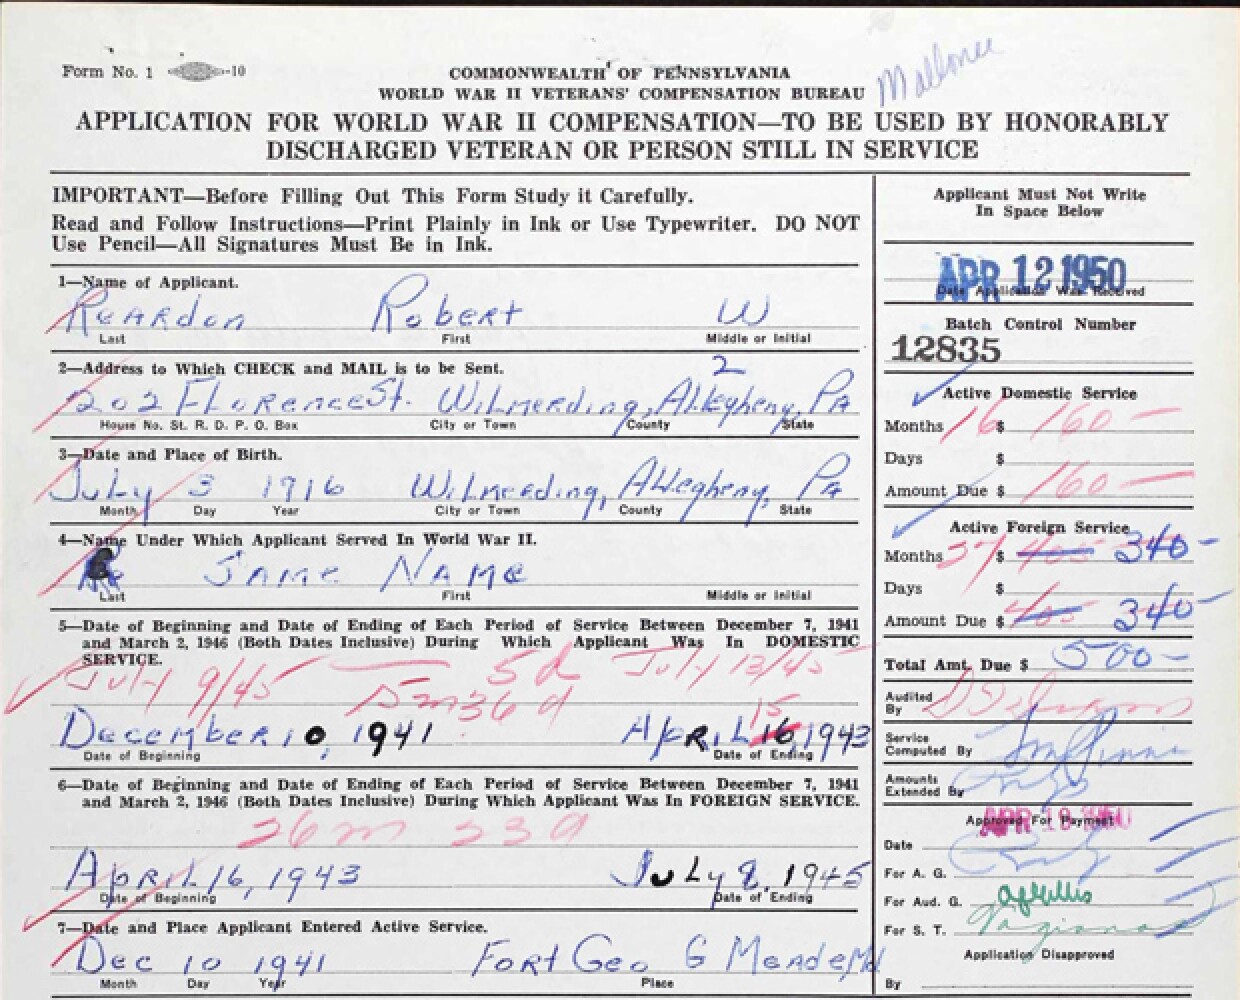 Form No. 1 -10
COMMONWEALTH OF PENNSYLVANIA
WORLD WAR II VETERANS' COMPENSATION BUREAU
Mallonee
APPLICATION FOR WORLD WAR II COMPENSATION—TO BE USED BY HONORABLY
DISCHARGED VETERAN OR PERSON STILL IN SERVICE
IMPORTANT—Before Filling Out This Form Study it Carefully.
Read and Follow Instructions—Print Plainly in Ink or Use Typewriter. DO NOT
Use Pencil—All Signatures Must Be in Ink.
1—Name of Applicant.
Reardon Robert W
Last First Middle or Initial
2—Address to Which CHECK and MAIL is to be Sent.
2
202 Florence St. Wilmerding, Allegheny, Pa
House No. St. R. D. P. O. Box City or Town County State
3—Date and Place of Birth.
July 3 1916 Wilmerding, Allegheny, Pa
Month Day Year City or Town County State
4—Name Under Which Applicant Served In World War II.
Same Name
Last First Middle or Initial
5—Date of Beginning and Date of Ending of Each Period of Service Between December 7, 1941
and March 2, 1946 (Both Dates Inclusive) During Which Applicant Was In DOMESTIC
SERVICE.
July 9/45 — 5d July 13/45
15
December 10, 1941 April 16, 1943
Date of Beginning Date of Ending
6—Date of Beginning and Date of Ending of Each Period of Service Between December 7, 1941
and March 2, 1946 (Both Dates Inclusive) During Which Applicant Was In FOREIGN SERVICE.
26m 23d
April 16, 1943 July 8, 1945
Date of Beginning Date of Ending
7—Date and Place Applicant Entered Active Service.
Dec 10 1941 Fort Geo G Meade Md
Month Day Year Place
Applicant Must Not Write
In Space Below
APR 12 1950
Date Application Was Received
Batch Control Number
12835
Active Domestic Service
Months 16 $ 160 —
Days $
Amount Due $ 160 —
Active Foreign Service
Months 27 $ 405 340 —
Days $
Amount Due $ 405 340 —
Total Amt. Due $ 500 —
Audited
By
Service
Computed By
Amounts
Extended By
Approved For Payment
APR 19 1950
Date
For A. G.
For Aud. G.
For S. T.
Application Disapproved
By